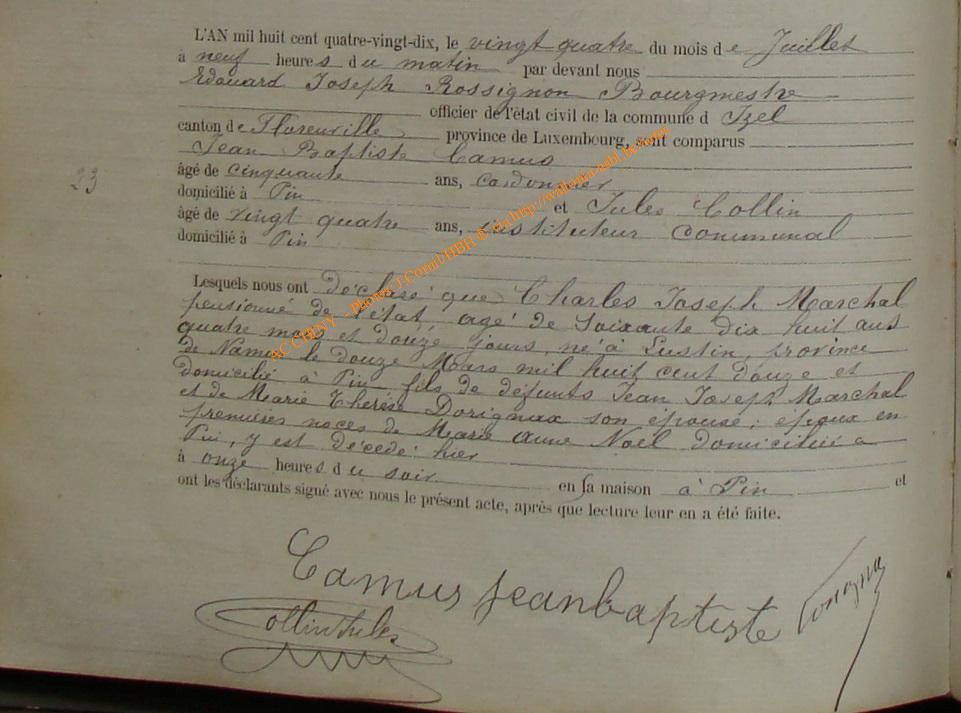 L'AN mil huit cent quatre-vingt-dix, le vingt quatre du mois de Juillet
à neuf heures du matin par devant nous
Edouard Joseph Rossignon Bourgmestre
officier de l'état civil de la commune d Izel
canton de Florenville province de Luxembourg, sont comparus
Jean Baptiste Camus
âgé de cinquante ans, cordonnier
23
domicilié à Pin et Jules Collin
âgé de vingt quatre ans, instituteur communal
domicilié à Pin
Lesquels nous ont déclaré que Charles Joseph Marchal
pensionné de l'état, agé de Soixante dix huit ans
quatre mois et douze jours, né à Lustin, province
de Namur le douze Mars mil huit cent douze et
domicilié à Pin fils de défunts Jean Joseph Marchal
et de Marie Thérèse Dorignaux son épouse; époux en
premières noces de Marie Anne Noël domiciliée à
Pin, y est décédé hier
à onze heures du soir en sa maison à Pin et
ont les déclarants signé avec nous le présent acte, après que lecture leur en a été faite.
Camus jeanbaptiste
Collin Jules
AC CHINY - Photos J Comt HBH © via http://wallonia-asbl.be